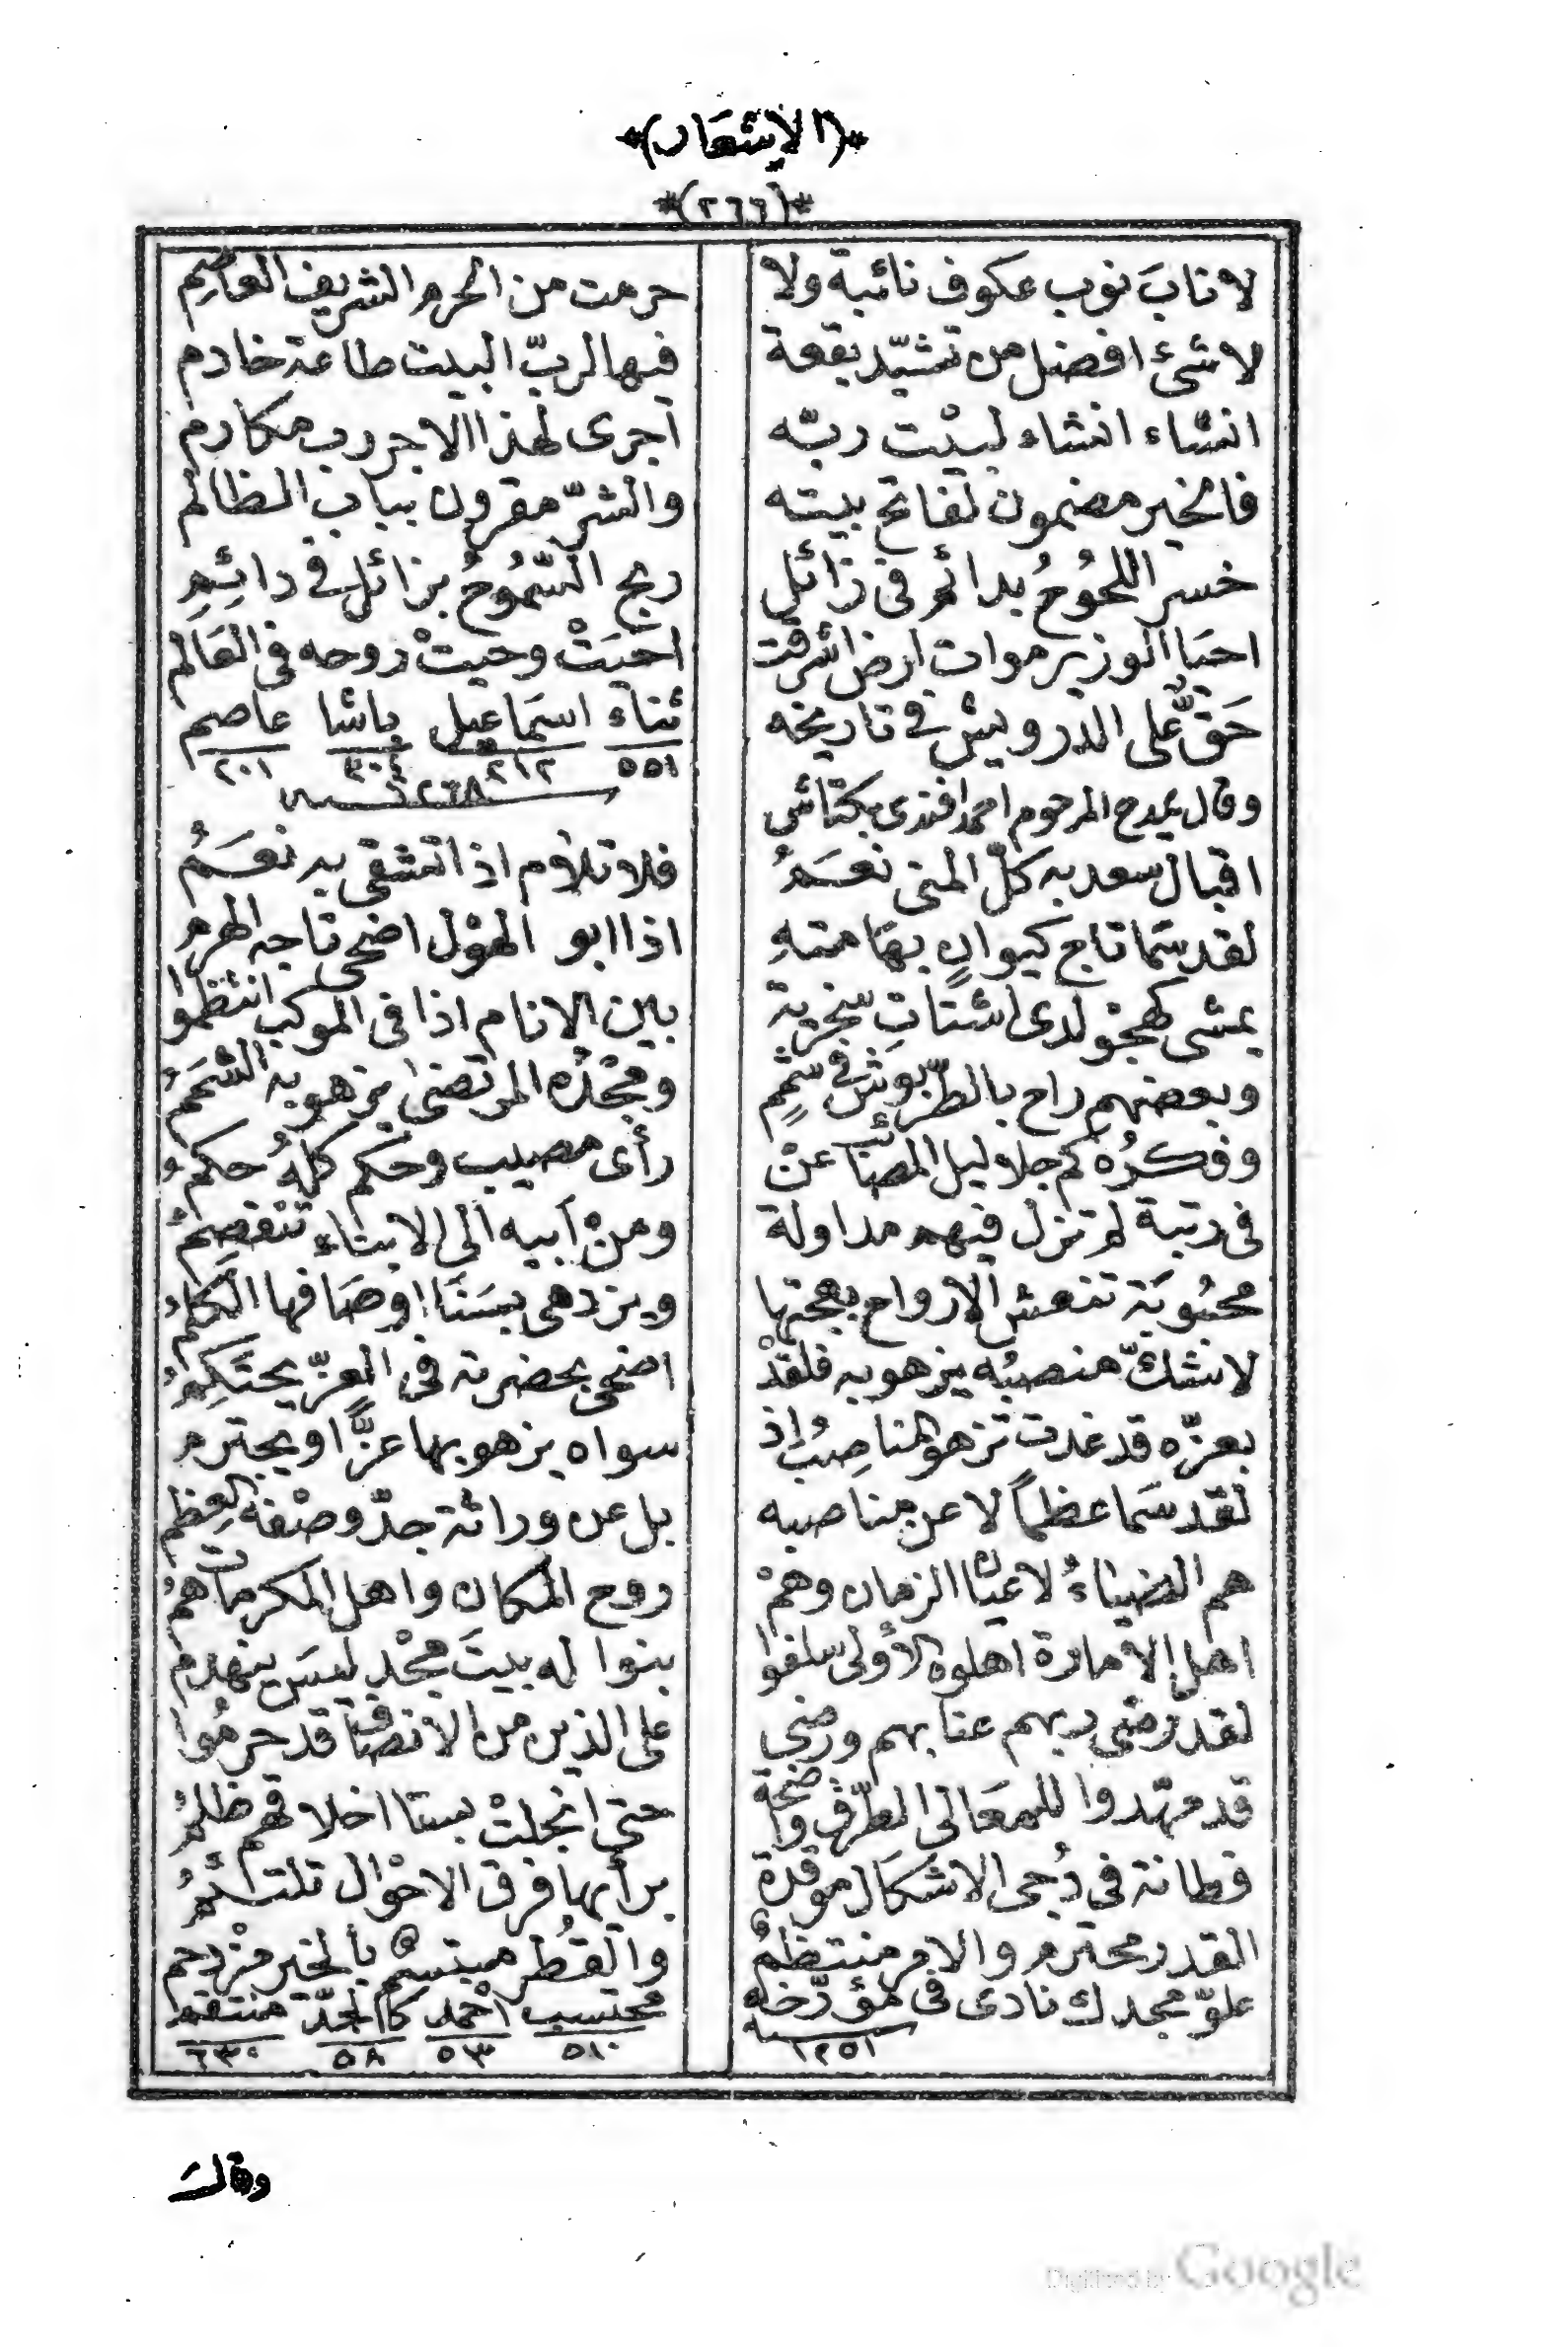 *(الإشعار)*
*(٢٦٦)*
لا ناب نوب عكوف نائبة ولا حرمت من الحرم الشريف العاصم
لا شئ افضل من تشيّد بقعة فيها لربّ البيت طاعة خادم
انشاء انشاء لبيْت ربّه أجرى لهذا الاجر رب مكارم
فالخير مضمون لفاتح بيته والشرّ مقرون بباب الظالم
خسر اللحُوحُ بدائم فى زائل ربح السّمُوحُ بزائل فى دائِمِ
احيا الوزير موات ارض اشرقت احيَتْ وحيتْ روحه فى العَالم
حَقٌّ على الدرويش فى تاريخه ثناء اسماعيل باشا عاصم
٥٥١ ٢١٢ ٣٠٤ ٢٠١
١٢٦٨ سنة
وقال يمدح المرحوم احمد افندى بكتاشى
اقبال سعد به كلّ المنى نعَمُ فلا تلام اذا تشقى به نعَمُ
لقد سما تاج كيوانٍ بهامتهِ اذا ابو الهوْل اضحى تاجه الهرم
يمشى كهجْو لدى اشتاتِ سخرية بين الانام اذا فى الموكب انتظموا
وبعضهم راح بالطّربوش فى شممٍ ومجْدُه المرتضى يزهو به الشمَمُ
وفكرُه كم جلا ليل المصائب عنْ رأى مصيب وحكم كلهُ حكمُ
فى رتبة لم تزل فيهم مداولة ومنْ أبيه الى الابناء تنقصمُ
محبُوبَة تنعش الارواح بهجتها ويزدهى بسَنَا اوصَافها الكلمُ
لا نشكّ منصبُه يزهو به فلقدْ اضحى بحضرته فى العزّ يحتَكِمُ
بعزّه قد غدت تزهو المناصِبُ إذ سواه يزهو بها عزًّا ويحترم
لقد سَما عظمًا لا عن مناصبه بل عن وراثة جدّ وصْفهُ العِظم
هم الضياءُ لاعيان الزمان وهمْ روح المكان واهل المكرمات همُ
اهل الامارة اهلوه الأولى سلفوا بنوا له بيتَ مجْدٍ ليسَ ينهدم
لقد رضى ربهم عنا بهم ورضى على الذين من الانصاف قد حرمُوا
قد مهّدوا للمعَالى الطّرق واضحة حتى انجلتْ بسنا اخلاقهم ظلمُ
فطانة فى دُجى الاشكال موقدة برأيها فرق الاحْوال تلتئمُ
القدر محترم والامر منتظمٌ والقُطر مبتسم بالخير مزدحم
علوّ مجدك نادى فى مؤرّخه محتسب احْمد كامل لجدّة منتقم
١٢٥١ سنة ٥١٠ ٥٣ ٥٨ ٦٣٠
وقال
Digitized by Google